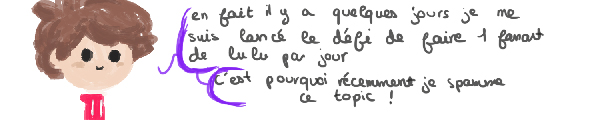 en fait il y a quelques jours je me
suis lancé le défi de faire 1 fanart
de lulu par jour
C'est pourquoi récemment je spamme
ce topic !